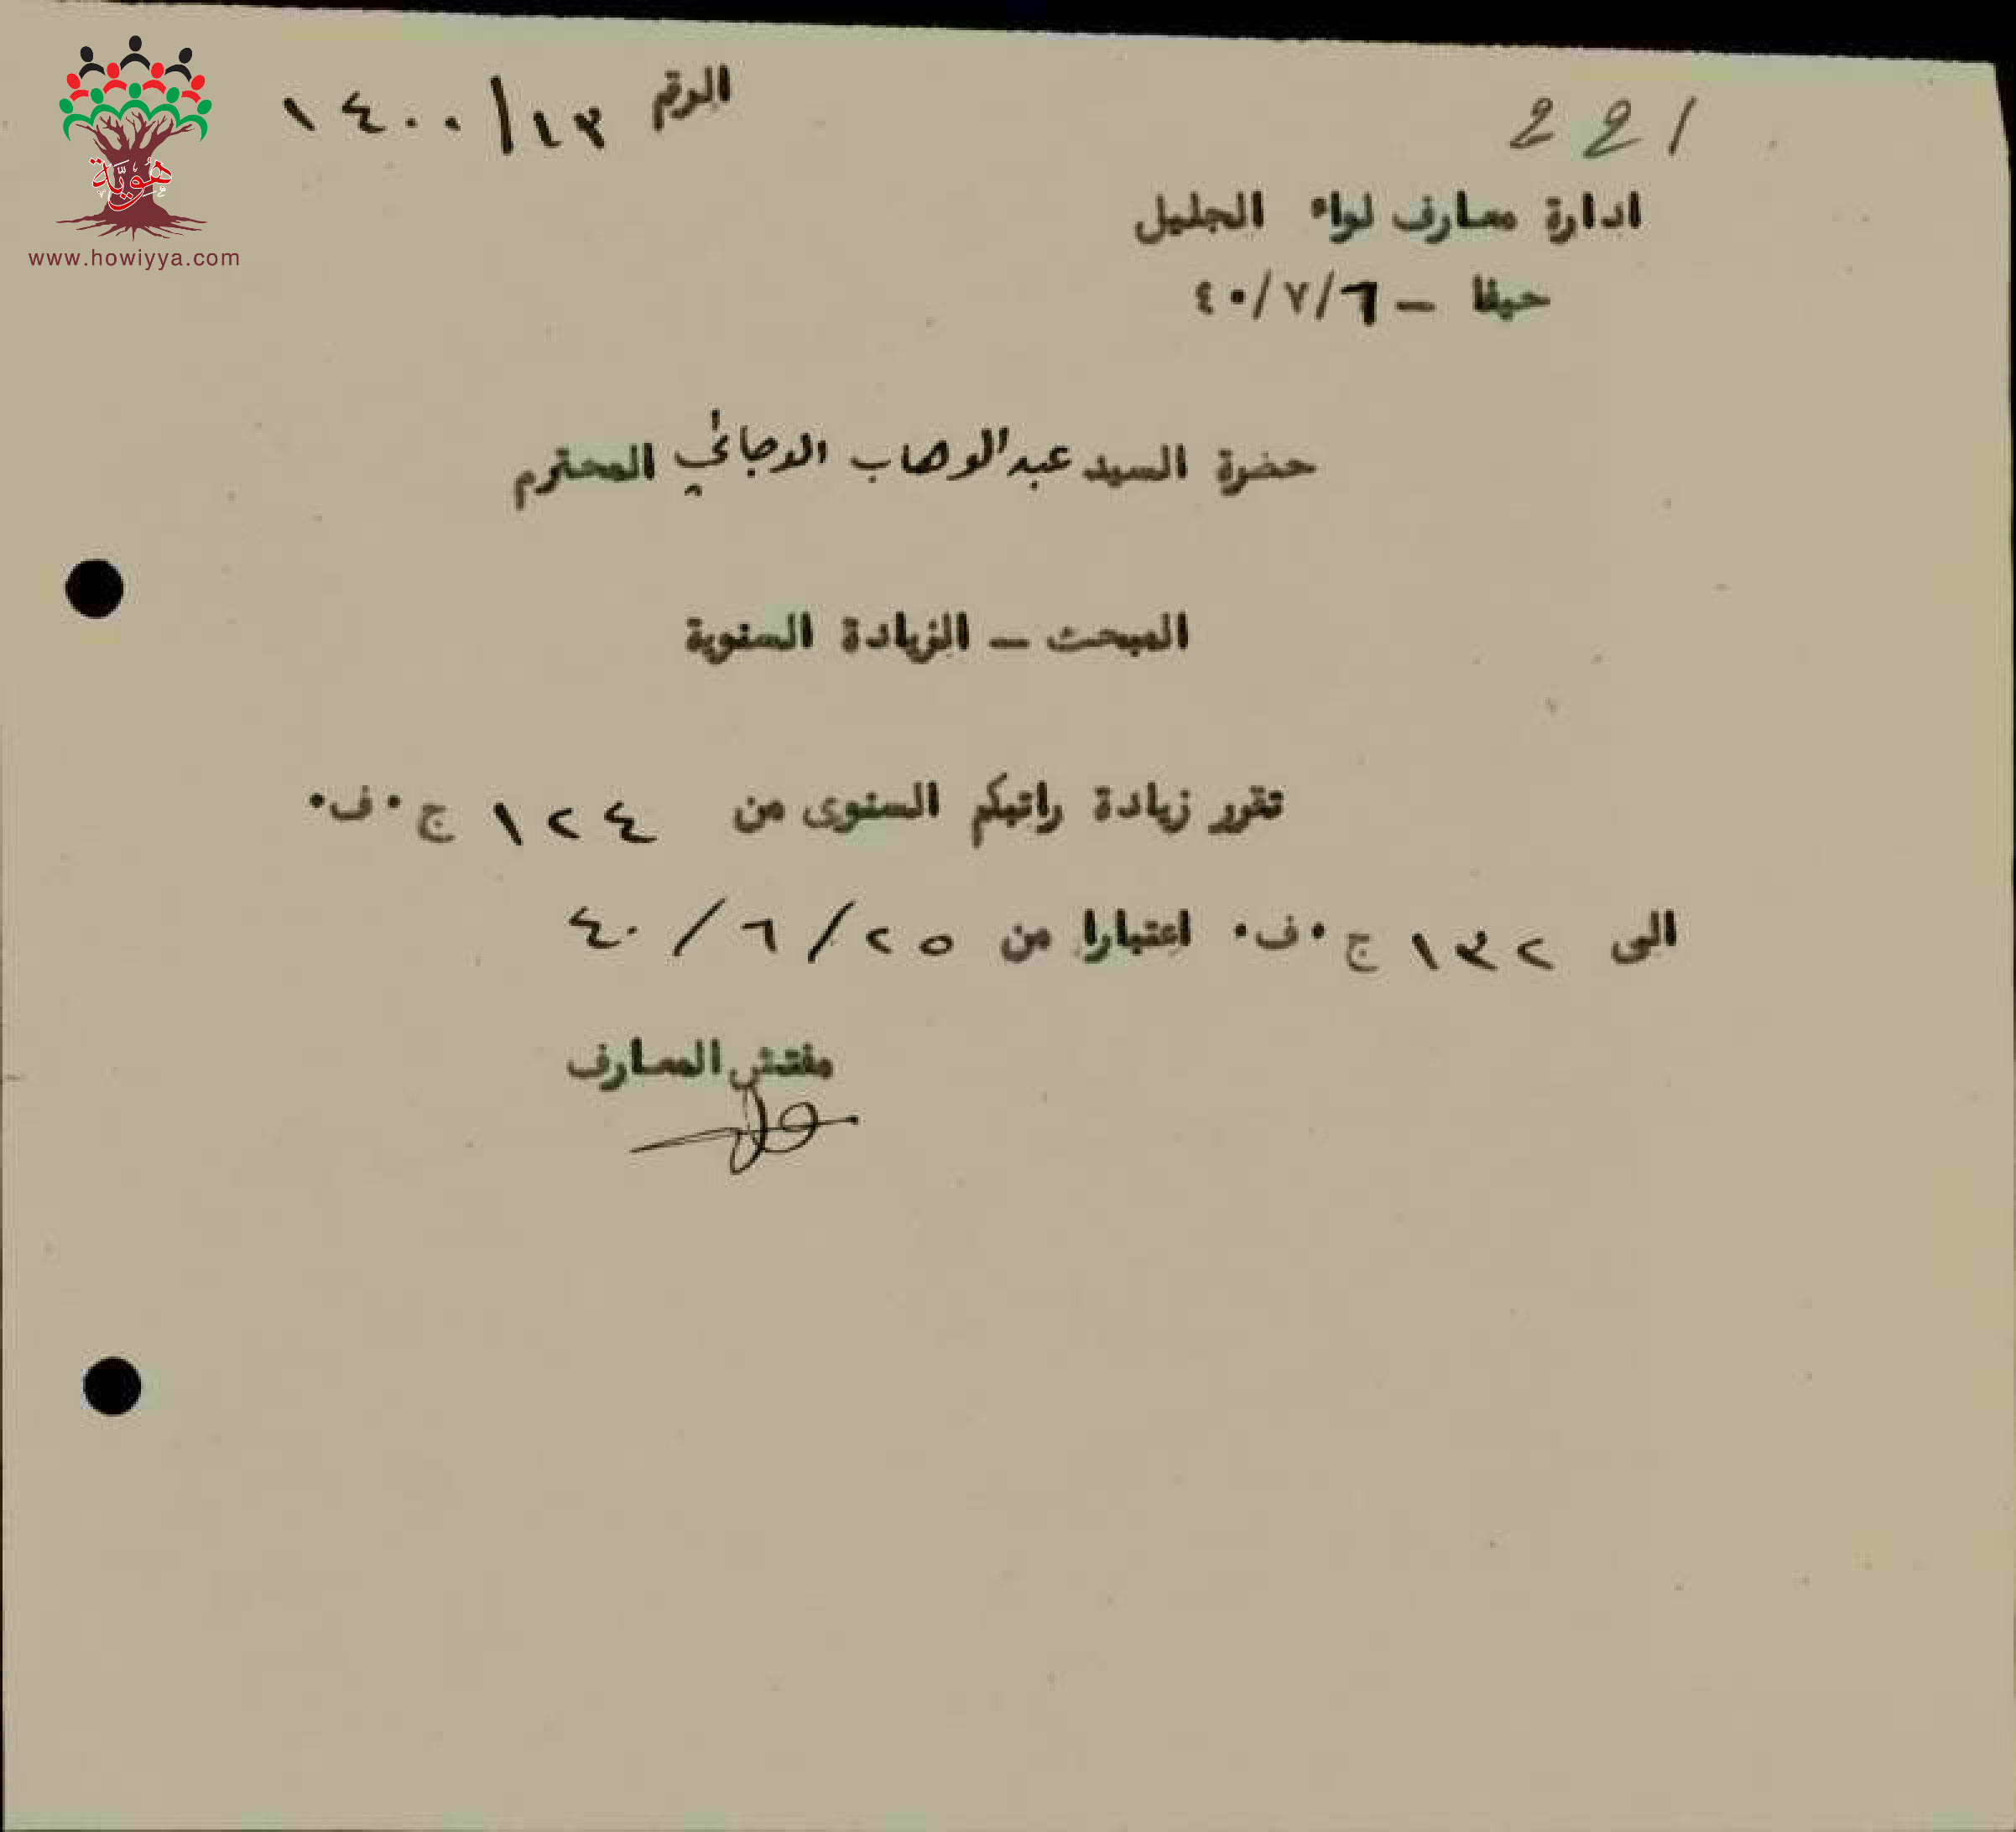 هوية
www.howiyya.com
الرقم ١٤٠٠/١٣
ادارة معارف لواء الجليل
حيفا – ٤٠/٧/٦
حضرة السيد عبد الوهاب الدجاني المحترم
المبحث – الزيادة السنوية
تقرر زيادة راتبكم السنوى من ١٢٤ ج٠ف٠
الى ١٣٢ ج٠ف٠ اعتبارا من ٤٠/٦/٢٥
مفتش المعارف